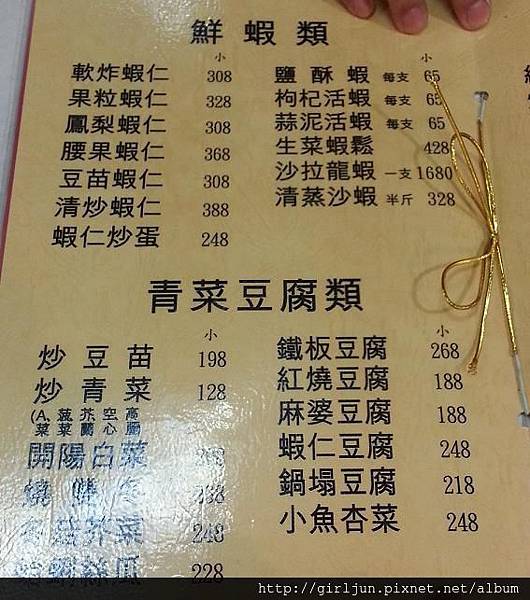 鮮蝦類
小
軟炸蝦仁 308
果粒蝦仁 328
鳳梨蝦仁 308
腰果蝦仁 368
豆苗蝦仁 308
清炒蝦仁 388
蝦仁炒蛋 248
小
鹽酥蝦 每支 65
枸杞活蝦 每支 65
蒜泥活蝦 每支 65
生菜蝦鬆 428
沙拉龍蝦 一支 1680
清蒸沙蝦 半斤 328
青菜豆腐類
小
炒豆苗 198
炒青菜 128
(A菜、菠菜、芥蘭、空心、高麗
開陽白菜
芥菜 248
絲瓜 228
小
鐵板豆腐 268
紅燒豆腐 188
麻婆豆腐 188
蝦仁豆腐 248
鍋塌豆腐 218
小魚杏菜 248
http://girljun.pixnet.net/album